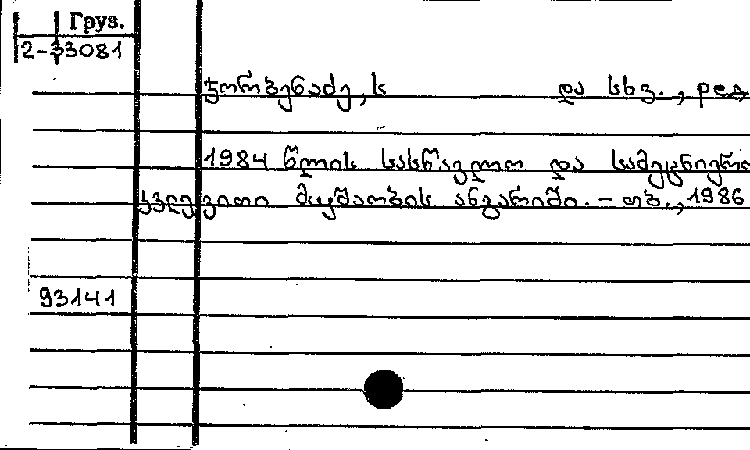 Груз.
2-33081
ჯორბენაძე, ს და სხვ., ред
1984 წლის სასწავლო და სამეცნიერო
კვლევითი მუშაობის ანგარიში. – თბ., 1986
93141